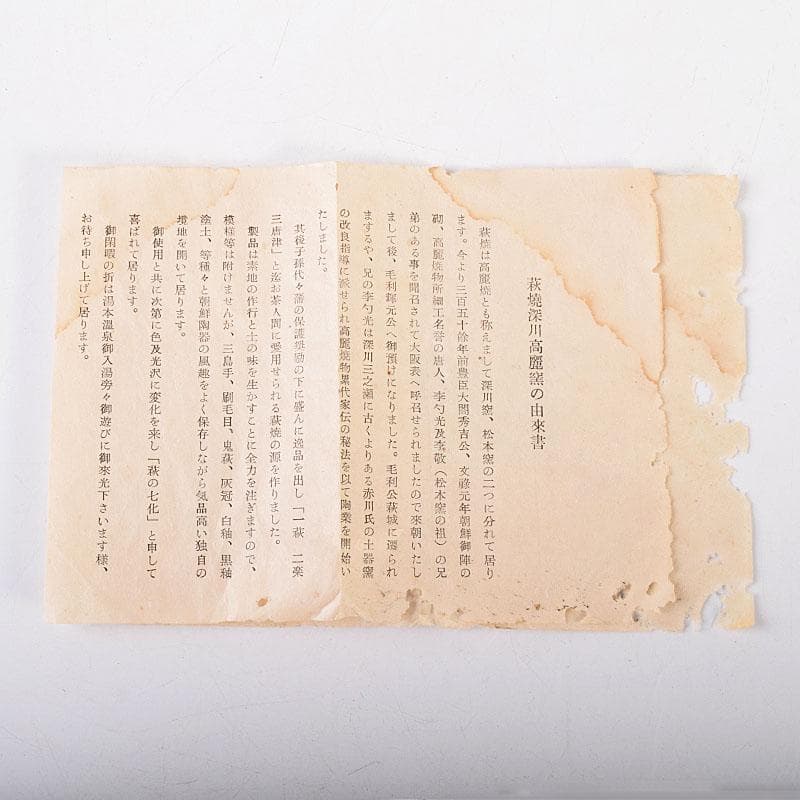 萩燒深川高麗窯の由來書
萩燒は高麗燒とも称えまして深川窯、松本窯の二つに分れて居り
ます。今より三百五十餘年前豊臣大閤秀吉公、文祿元年朝鮮御陣の
砌、高麗燒物所細工名誉の唐人、李勺光及李敬（松本窯の祖）の兄
弟のある事を聞召されて大阪表へ呼召せられましたので來朝いたし
まして後、毛利輝元公へ御預けになりました。毛利公萩城に遷られ
まするや、兄の李勺光は深川三之瀬に古くよりある赤川氏の土器窯
の改良指導に派せられ高麗燒物累代家伝の秘法を以て陶業を開始い
たしました。
其後子孫代々藩の保護奬励の下に盛んに逸品を出し「一萩　二楽
三唐津」と迄お茶人間に愛用せられる萩燒の源を作りました。
製品は素地の作行と土の味を生かすことに全力を注ぎますので、
模様等は附けませんが、三島手、刷毛目、鬼萩、灰冠、白釉、黒釉
塗土、等種々と朝鮮陶器の風趣をよく保存しながら気品高い独自の
境地を開いて居ります。
御使用と共に次第に色及光沢に変化を来し「萩の七化」と申して
喜ばれて居ります。
御閑暇の折は湯本温泉御入湯旁々御遊びに御來光下さいます様、
お待ち申し上げて居ります。